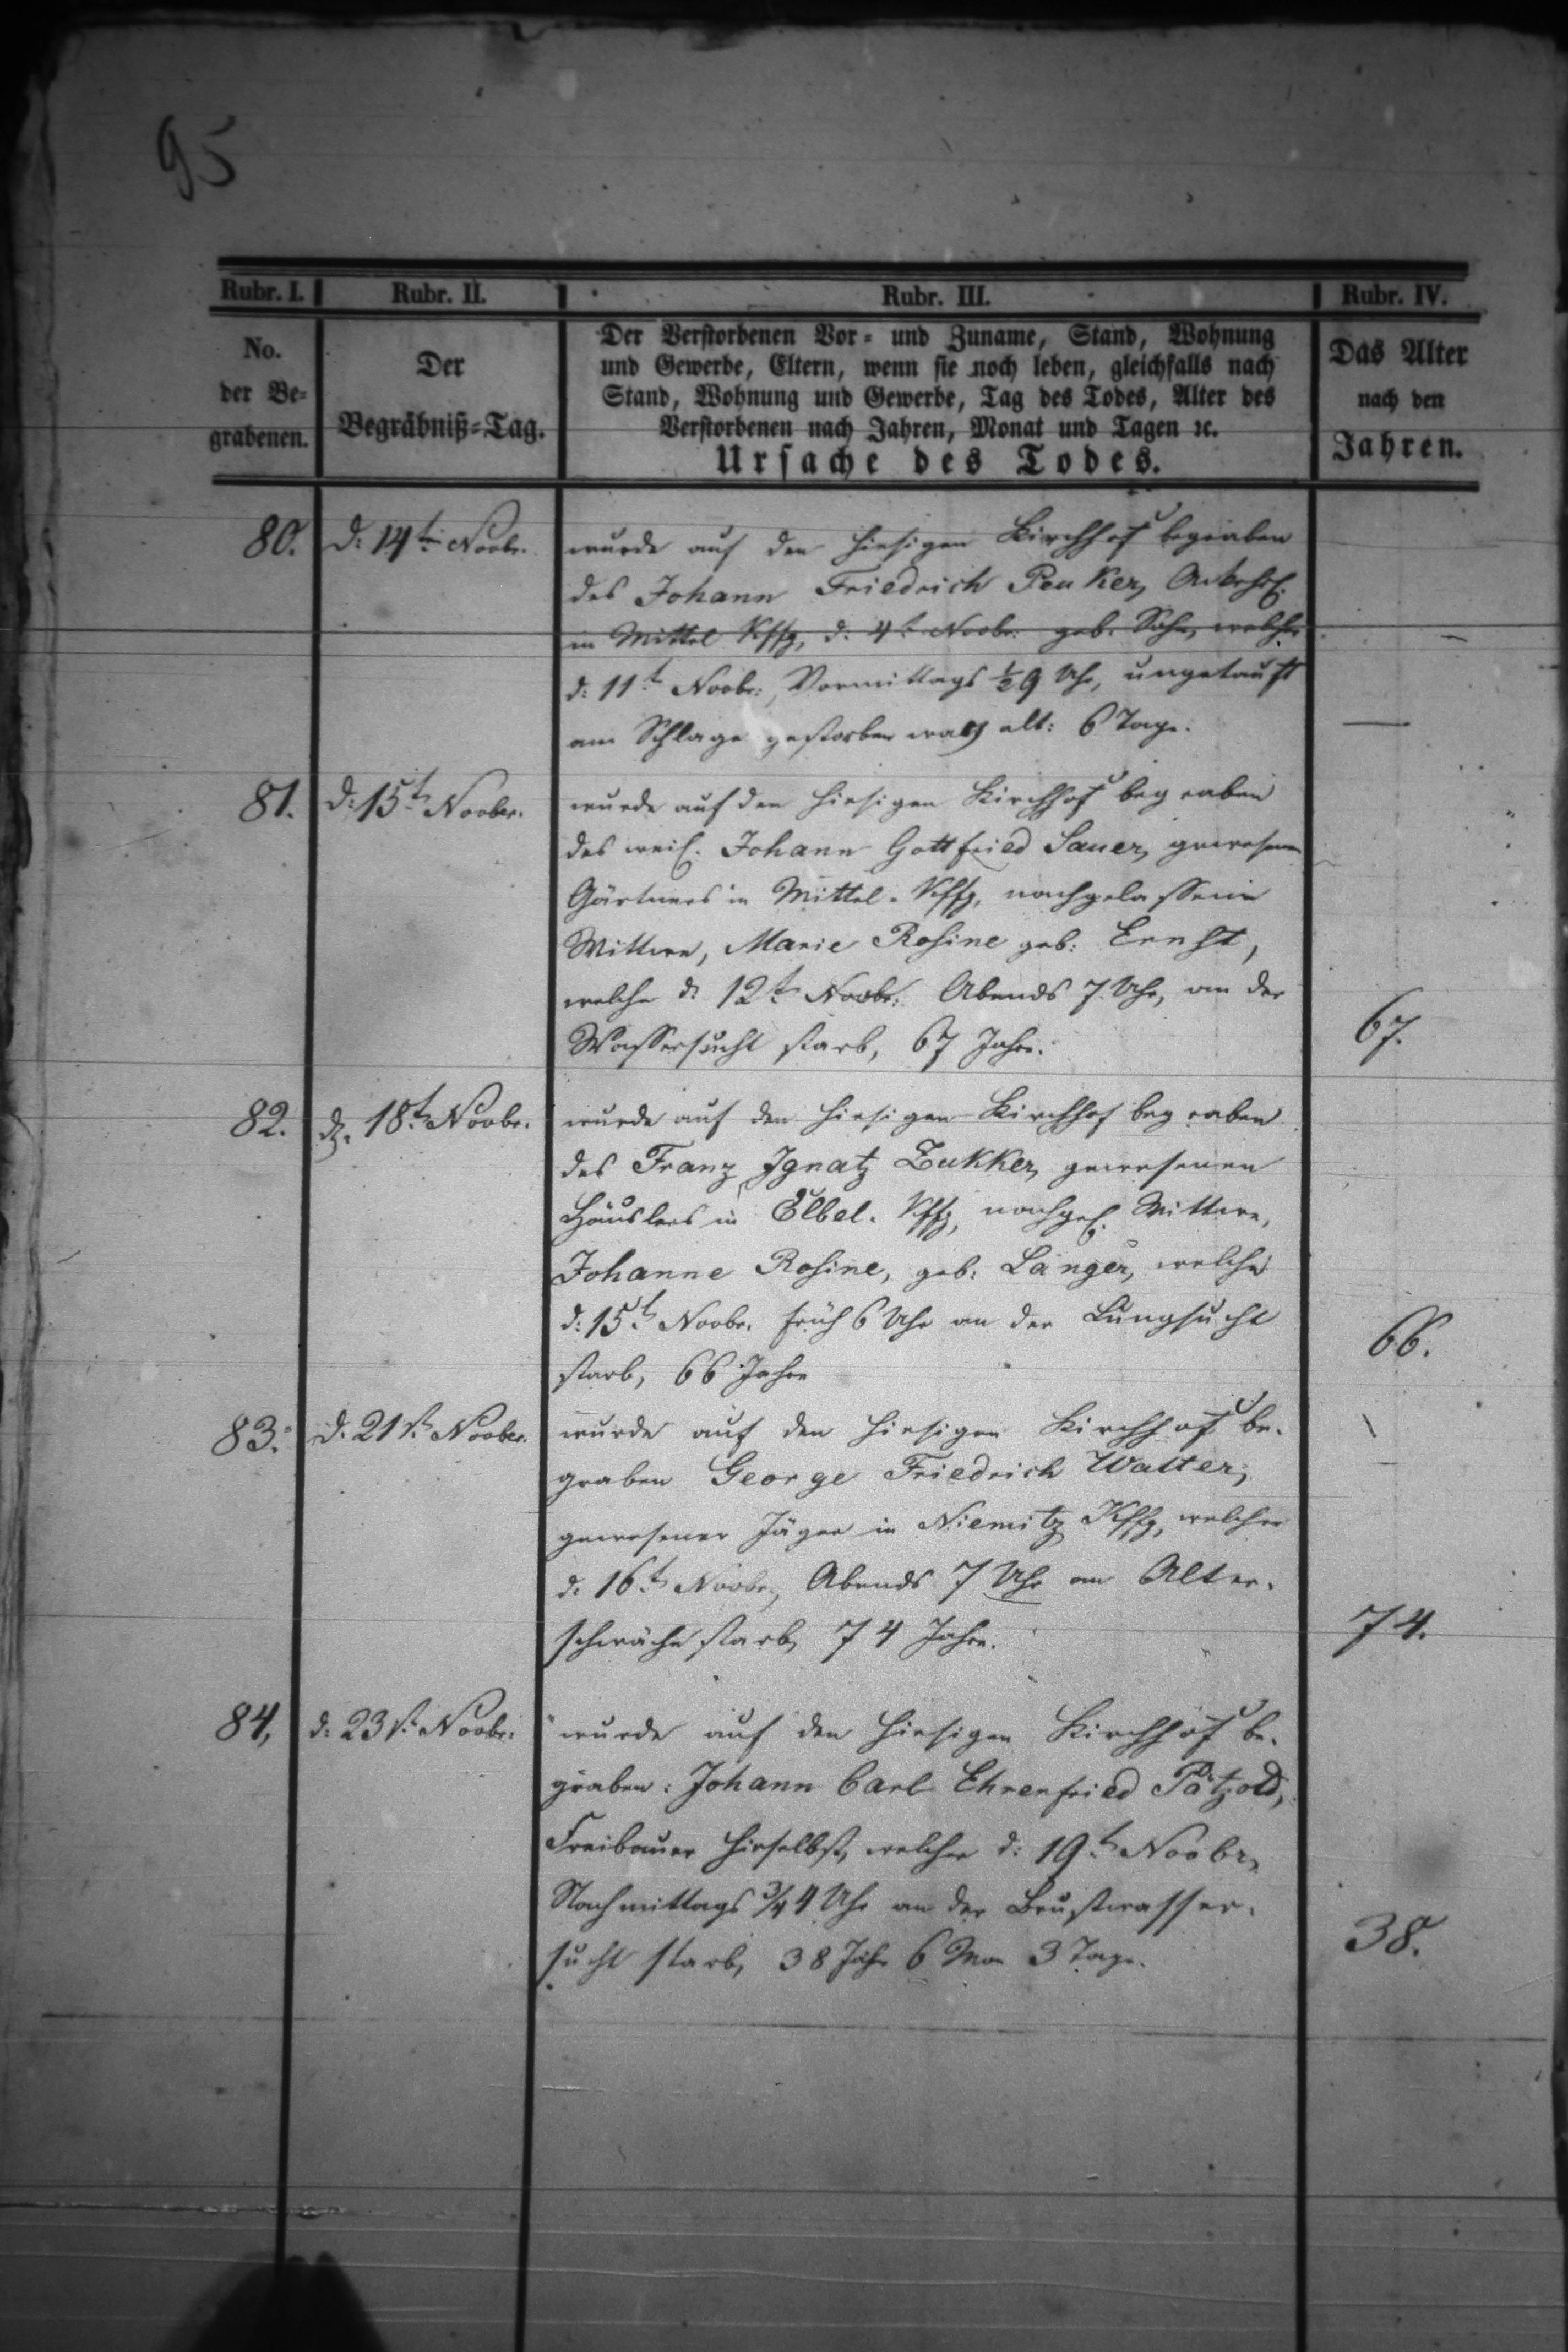 95
Rubr. I. Rubr. II. Rubr. III. Rubr. IV.
No. der Be= grabenen.
Der Begräbniß=Tag.
Der Verstorbenen Vor= und Zuname, Stand, Wohnung
und Gewerbe, Eltern, wenn sie noch leben, gleichfalls nach
Stand, Wohnung und Gewerbe, Tag des Todes, Alter des
Verstorbenen nach Jahren, Monat und Tagen ꝛc.
Ursache des Todes.
Das Alter
nach den
Jahren.
80. d: 14t Novbr. wurde auf den hiesigen Kirchhof begraben
des Johann Friedrich Peuker,
in Mittel Kffg, d: 4t Novbr. geb. Sohn, welcher
d: 11t Novbr:, Vormittags ½9 Uhr, ungetauft
am Schlage gestorben war alt: 6 Tage. —
81. d: 15t Novber. wurde auf den hiesigen Kirchhof begraben
des weil. Johann Gottfried Sauer, gewesenen
Gärtners in Mittel-Kffg, nachgelassene
Wittwe, Marie Rosine geb: Ernst,
welche d: 12t Novbr: Abends 7 Uhr, an der
Wassersucht starb, 67 Jahre. 67.
82. d. 18t Novbr. wurde auf den hiesigen Kirchhof begraben
des Franz Ignatz Zukker, gewesenen
Häuslers in Elbel-Kffg, nachgel. Wittwe,
Johanne Rosine, geb: Langer, welche
d: 15t Novbr. früh 6 Uhr an der Lungsucht
starb, 66 Jahre 66.
83. d. 21st. Novber. wurde auf den hiesigen Kirchhof be-
graben George Friedrich Walter,
gewesener Jäger in Niemitz Kffg, welcher
d: 16t Novbr:, Abends 7 Uhr an Alter-
schwäche starb, 74 Jahre. 74.
84, d: 23st. Novbr: wurde auf den hiesigen Kirchhof be-
graben: Johann Carl Ehrenfried Pätzold,
Freibauer hierselbst, welcher d: 19t Novbr,
Nachmittags ¾4 Uhr an der Brustwasser-
sucht starb, 38 Jahr 6 Mon 3 Tage. 38.